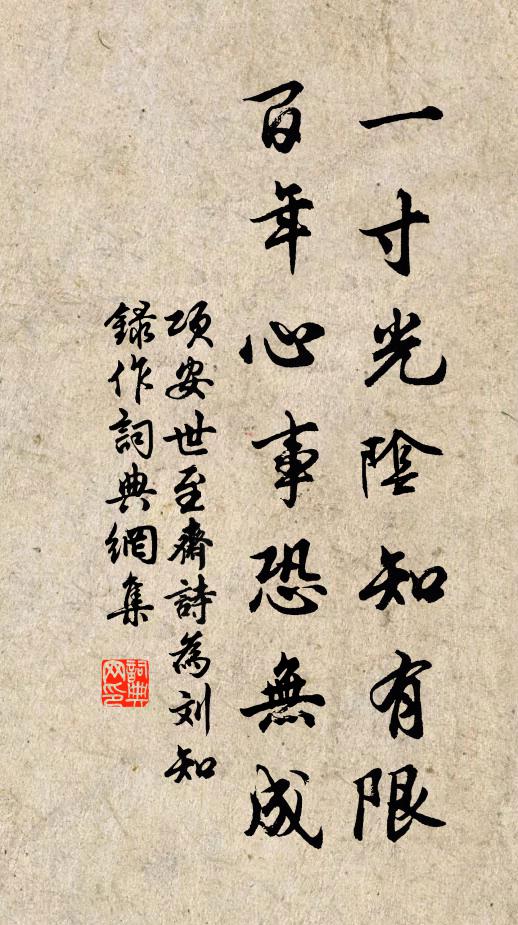 一寸光陰知有限
百年心事恐無成
項安世至齋詩為刘知
錄作詞典網集
詞典网印